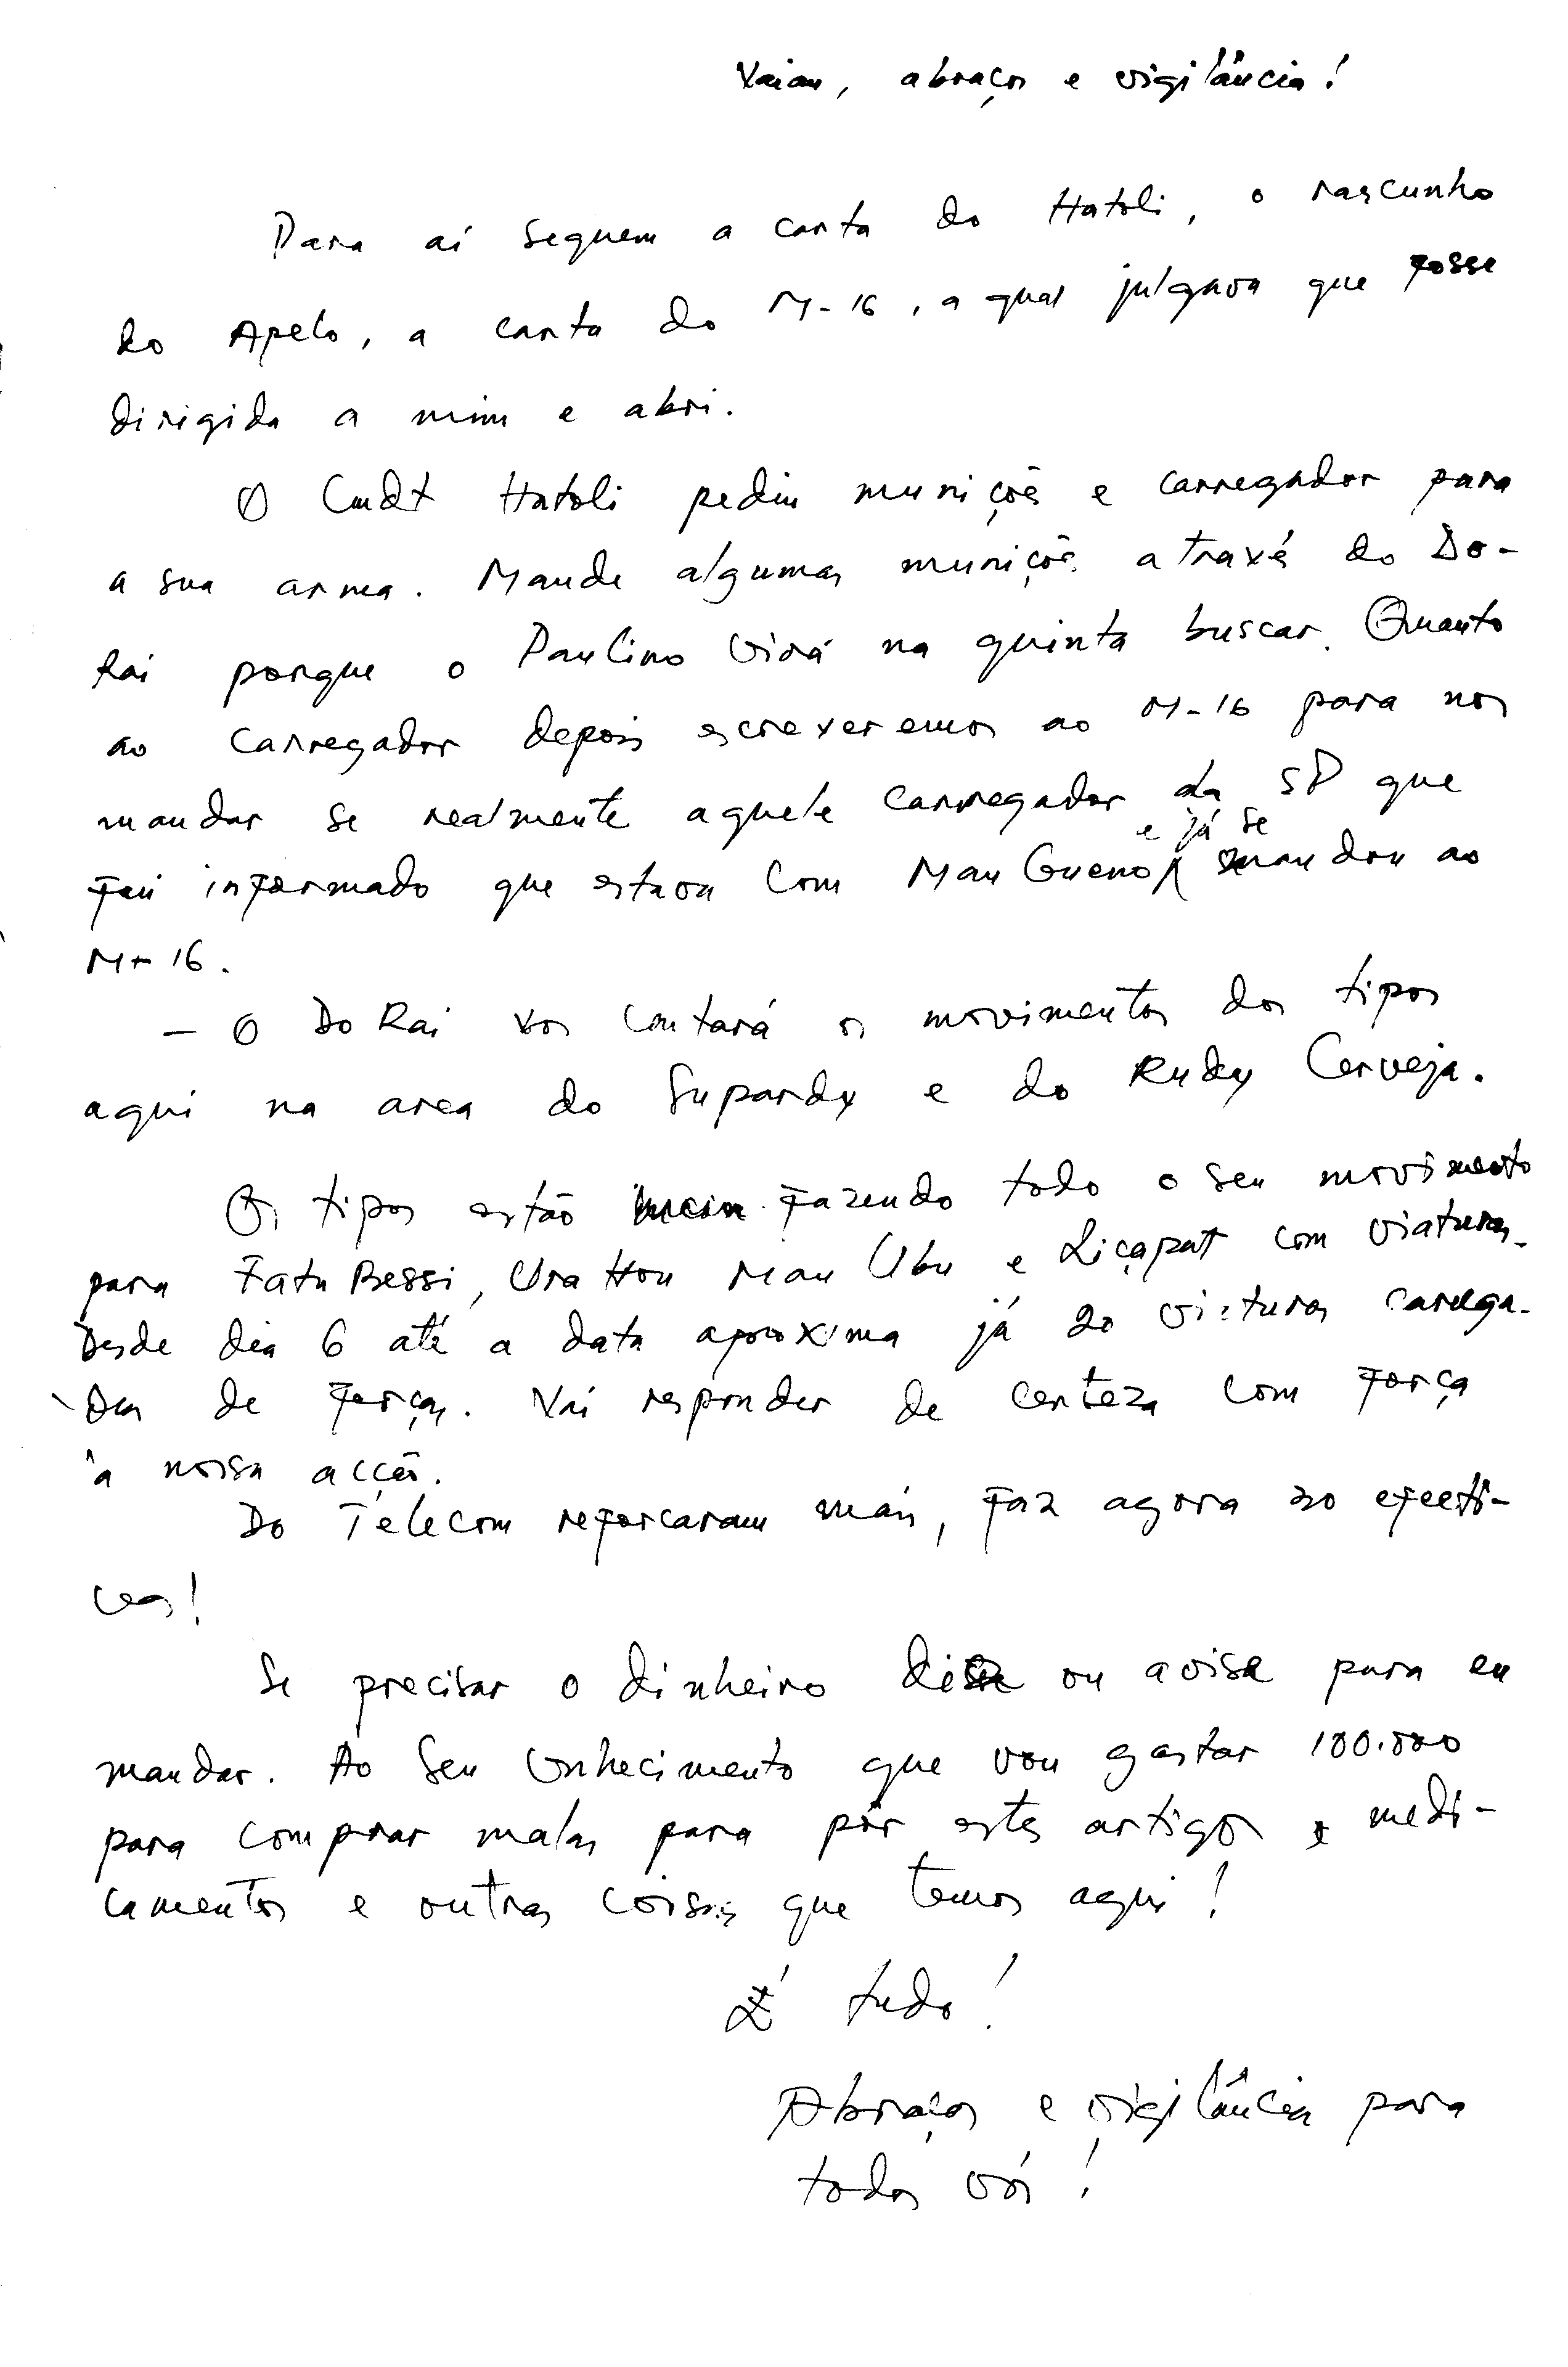 Vaiam, abraços e vigilância!
Para aí seguem a carta do Hatoli, o rascunho
do Apelo, a carta do M-16, a qual julgava que fosse
dirigida a mim e abri.
O Cmdt Hatoli pediu munições e carregador para
a sua arma. Mande algumas munições através do Do-
Rai porque o Paulino virá na quinta buscar. Quanto
ao carregador depois escreveremos ao M-16 para nos
mandar se realmente aquele carregador da SP que
e já se
fui informado que estava com Mau Gueno mandou ao
M-16.
- O Do Rai vos contará os movimentos dos tipos
aqui na area do Supardy e do Rudy Cerveja.
Os tipos estão fazendo todo o seu movimento
para Fatu Bessi, Ura Hou Mau Ubu e Liçapat com viaturas.
Desde dia 6 até a data aproxima já 20 viaturas carrega-
das de forças. Vai responder de certeza com força
à nossa acção.
Do Telecom reforcaram mais, faz agora 20 efecti-
vos!
Se precisar o dinheiro ou avise para eu
mandar. Ao seu conhecimento que vou gastar 100.000
para comprar malas para pôr estes artigos e medi-
camentos e outras coisas que temos aqui!
É tudo!
Abraços e vigilância para
todos vós!